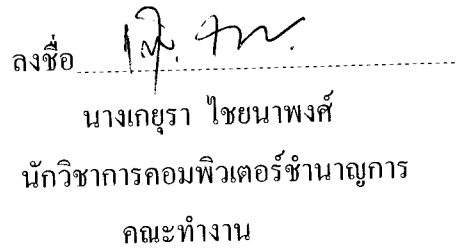 ลงชื่อ
นางเกยุรา ไชยนาพงศ์
นักวิชาการคอมพิวเตอร์ชำนาญการ
คณะทำงาน